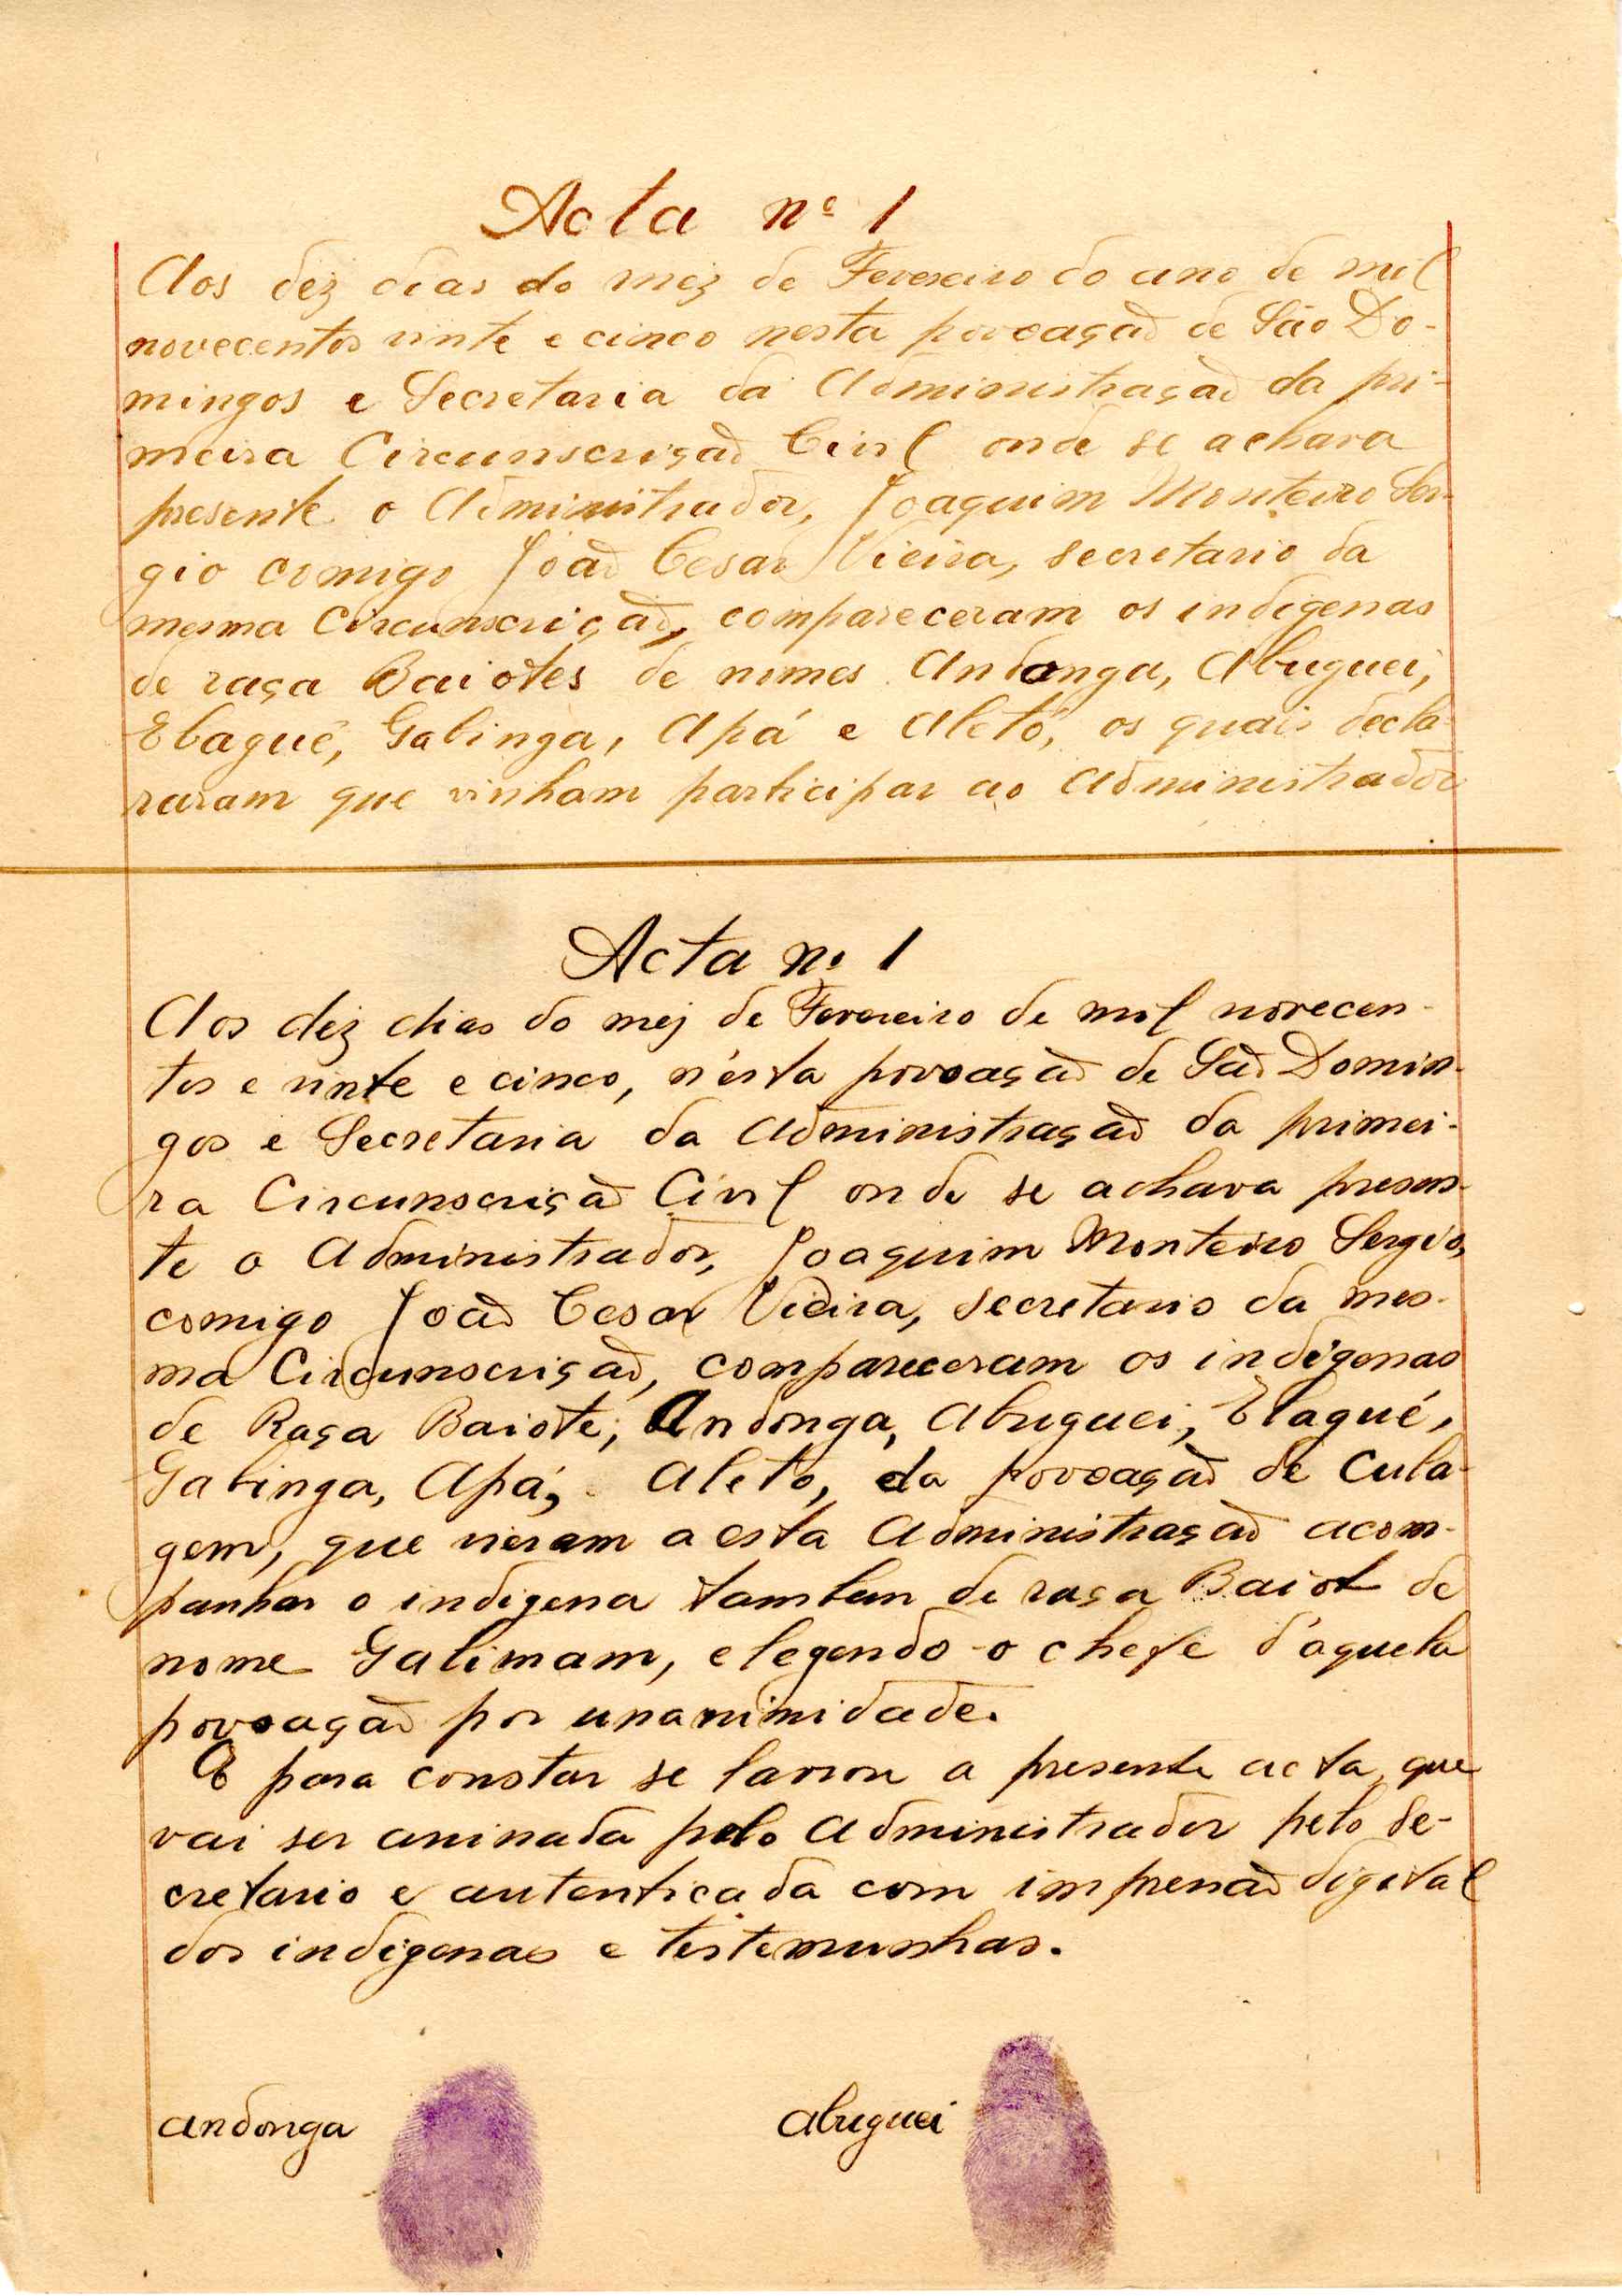 Acta nº 1
Aos dez dias do mez de Fevereiro do ano de mil
novecentos vinte e cinco nesta povoação de São Do-
mingos e Secretaria da Administração da pri-
meira Circunscrição Civil onde se achava
presente o Administrador, Joaquim Monteiro Ser-
gio comigo João Cesar Vieira, secretario da
mesma Circunscrição, compareceram os indigenas
de raça Baiotes de nomes Andonga, Abuguei,
Ebagué, Gabinga, Apá e Aletó, os quais decla-
raram que vinham participar ao Administrador
Acta nº 1
Aos dez dias do mez de Fevereiro de mil novecen-
tos e vinte e cinco, n'esta povoação de São Domin-
gos e Secretaria da Administração da primei-
ra Circunscrição Civil onde se achava presen-
te o Administrador, Joaquim Monteiro Sergio,
comigo João Cesar Vieira, secretario da mes-
ma Circunscrição, compareceram os indigenas
de Raça Baiote, Andonga, Abuguei, Ebagué,
Gabinga, Apá, Aleto, da povoação de Cula-
gem, que vieram a esta Administração acom-
panhar o indigena tambem de raça Baiot de
nome Galimam, elegendo-o chefe d'aquela
povoação por unanimidade.
E para constar se lavrou a presente acta, que
vai ser assinada pelo Administrador pelo Se-
cretario e autenticada com impressão digital
dos indigenas e testemunhas.
Andonga
Abuguei